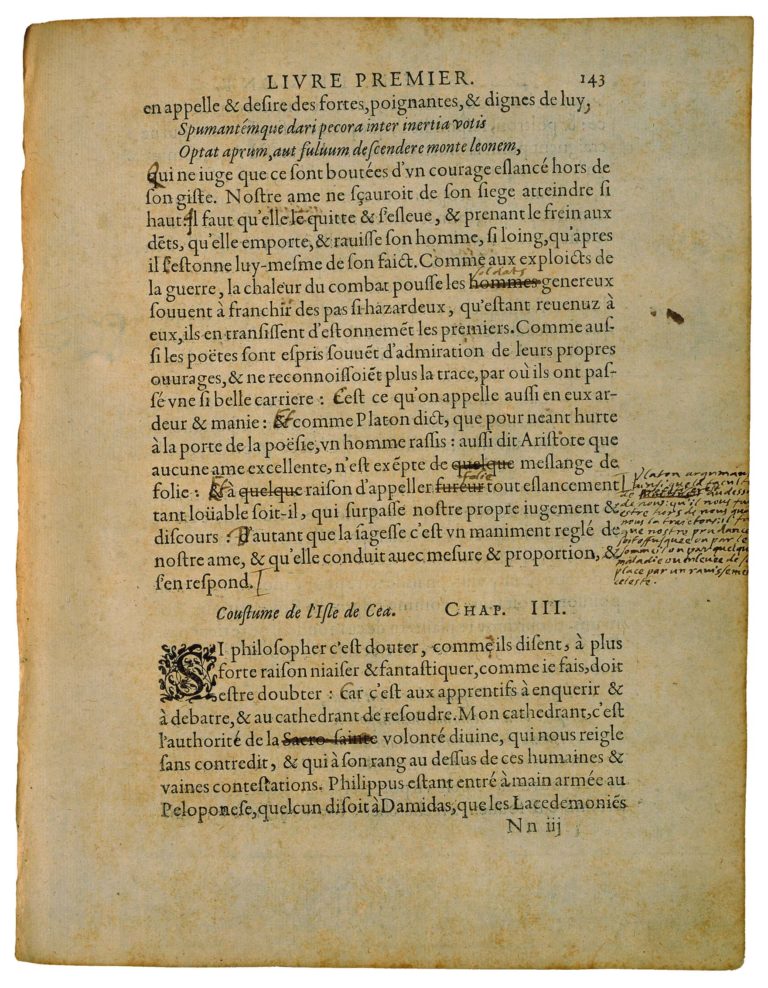 LIVRE PREMIER. 143
en appelle & deſire des fortes, poignantes, & dignes de luy,
Spumantémque dari pecora inter inertia votis
Optat aprum, aut fuluum deſcendere monte leonem,
Qui ne iuge que ce ſont boutées d'vn courage eſlancé hors de
ſon giſte. Noſtre ame ne ſçauroit de ſon ſiege atteindre ſi
haut: Il faut qu'elle le quitte & ſ'eſleue, & prenant le frein aux
dẽts, qu'elle emporte, & rauiſſe ſon homme, ſi loing, qu'apres
il ſ'eſtonne luy-meſme de ſon faict. Comme aux exploicts de
soldats
la guerre, la chaleur du combat pouſſe les hommes genereux
ſouuent à franchir des pas ſi hazardeux, qu'eſtant reuenuz à
eux, ils en tranſiſſent d'eſtonnemẽt les premiers. Comme auſ-
ſi les poëtes ſont eſpris ſouuẽt d'admiration de leurs propres
ouurages, & ne reconnoiſſoiẽt plus la trace, par où ils ont paſ-
ſé vne ſi belle carriere : C'eſt ce qu'on appelle auſſi en eux ar-
deur & manie : Et comme Platon dict, que pour neant hurte
à la porte de la poëſie, vn homme raſſis : auſſi dit Ariſtote que
aucune ame excellente, n'eſt exẽpte de quelque meſlange de
folie
folie : Et à quelque raiſon d'appeller fureur tout eſlancement
tant loüable ſoit-il, qui ſurpaſſe noſtre propre iugement &
diſcours : D'autant que la ſageſſe c'eſt vn maniment reglé de
noſtre ame, & qu'elle conduit auec meſure & proportion, &
ſ'en reſpond.
Platon arguman
au dessu
de nous qu'il nous
estre hors de nous qua
nous la traictons il
que nostre prudance
soit offusquee ou par le
sommeil ou par quelque
maladie ou enleuee de
place par un rauisseme
celeste.
Couſtume de l'Iſle de Cea. CHAP. III.
SI philoſopher c'eſt douter, comme ils diſent, à plus
forte raiſon niaiſer & fantaſtiquer, comme ie fais, doit
eſtre doubter : Car c'eſt aux apprentifs à enquerir &
à debatre, & au cathedrant de reſoudre. Mon cathedrant, c'eſt
l'authorité de la Sacro-ſainte volonté diuine, qui nous reigle
ſans contredit, & qui à ſon rang au deſſus de ces humaines &
vaines conteſtations. Philippus eſtant entré à main armée au
Peloponeſe, quelcun diſoit à Damidas, que les Lacedemoniẽs
Nn iij